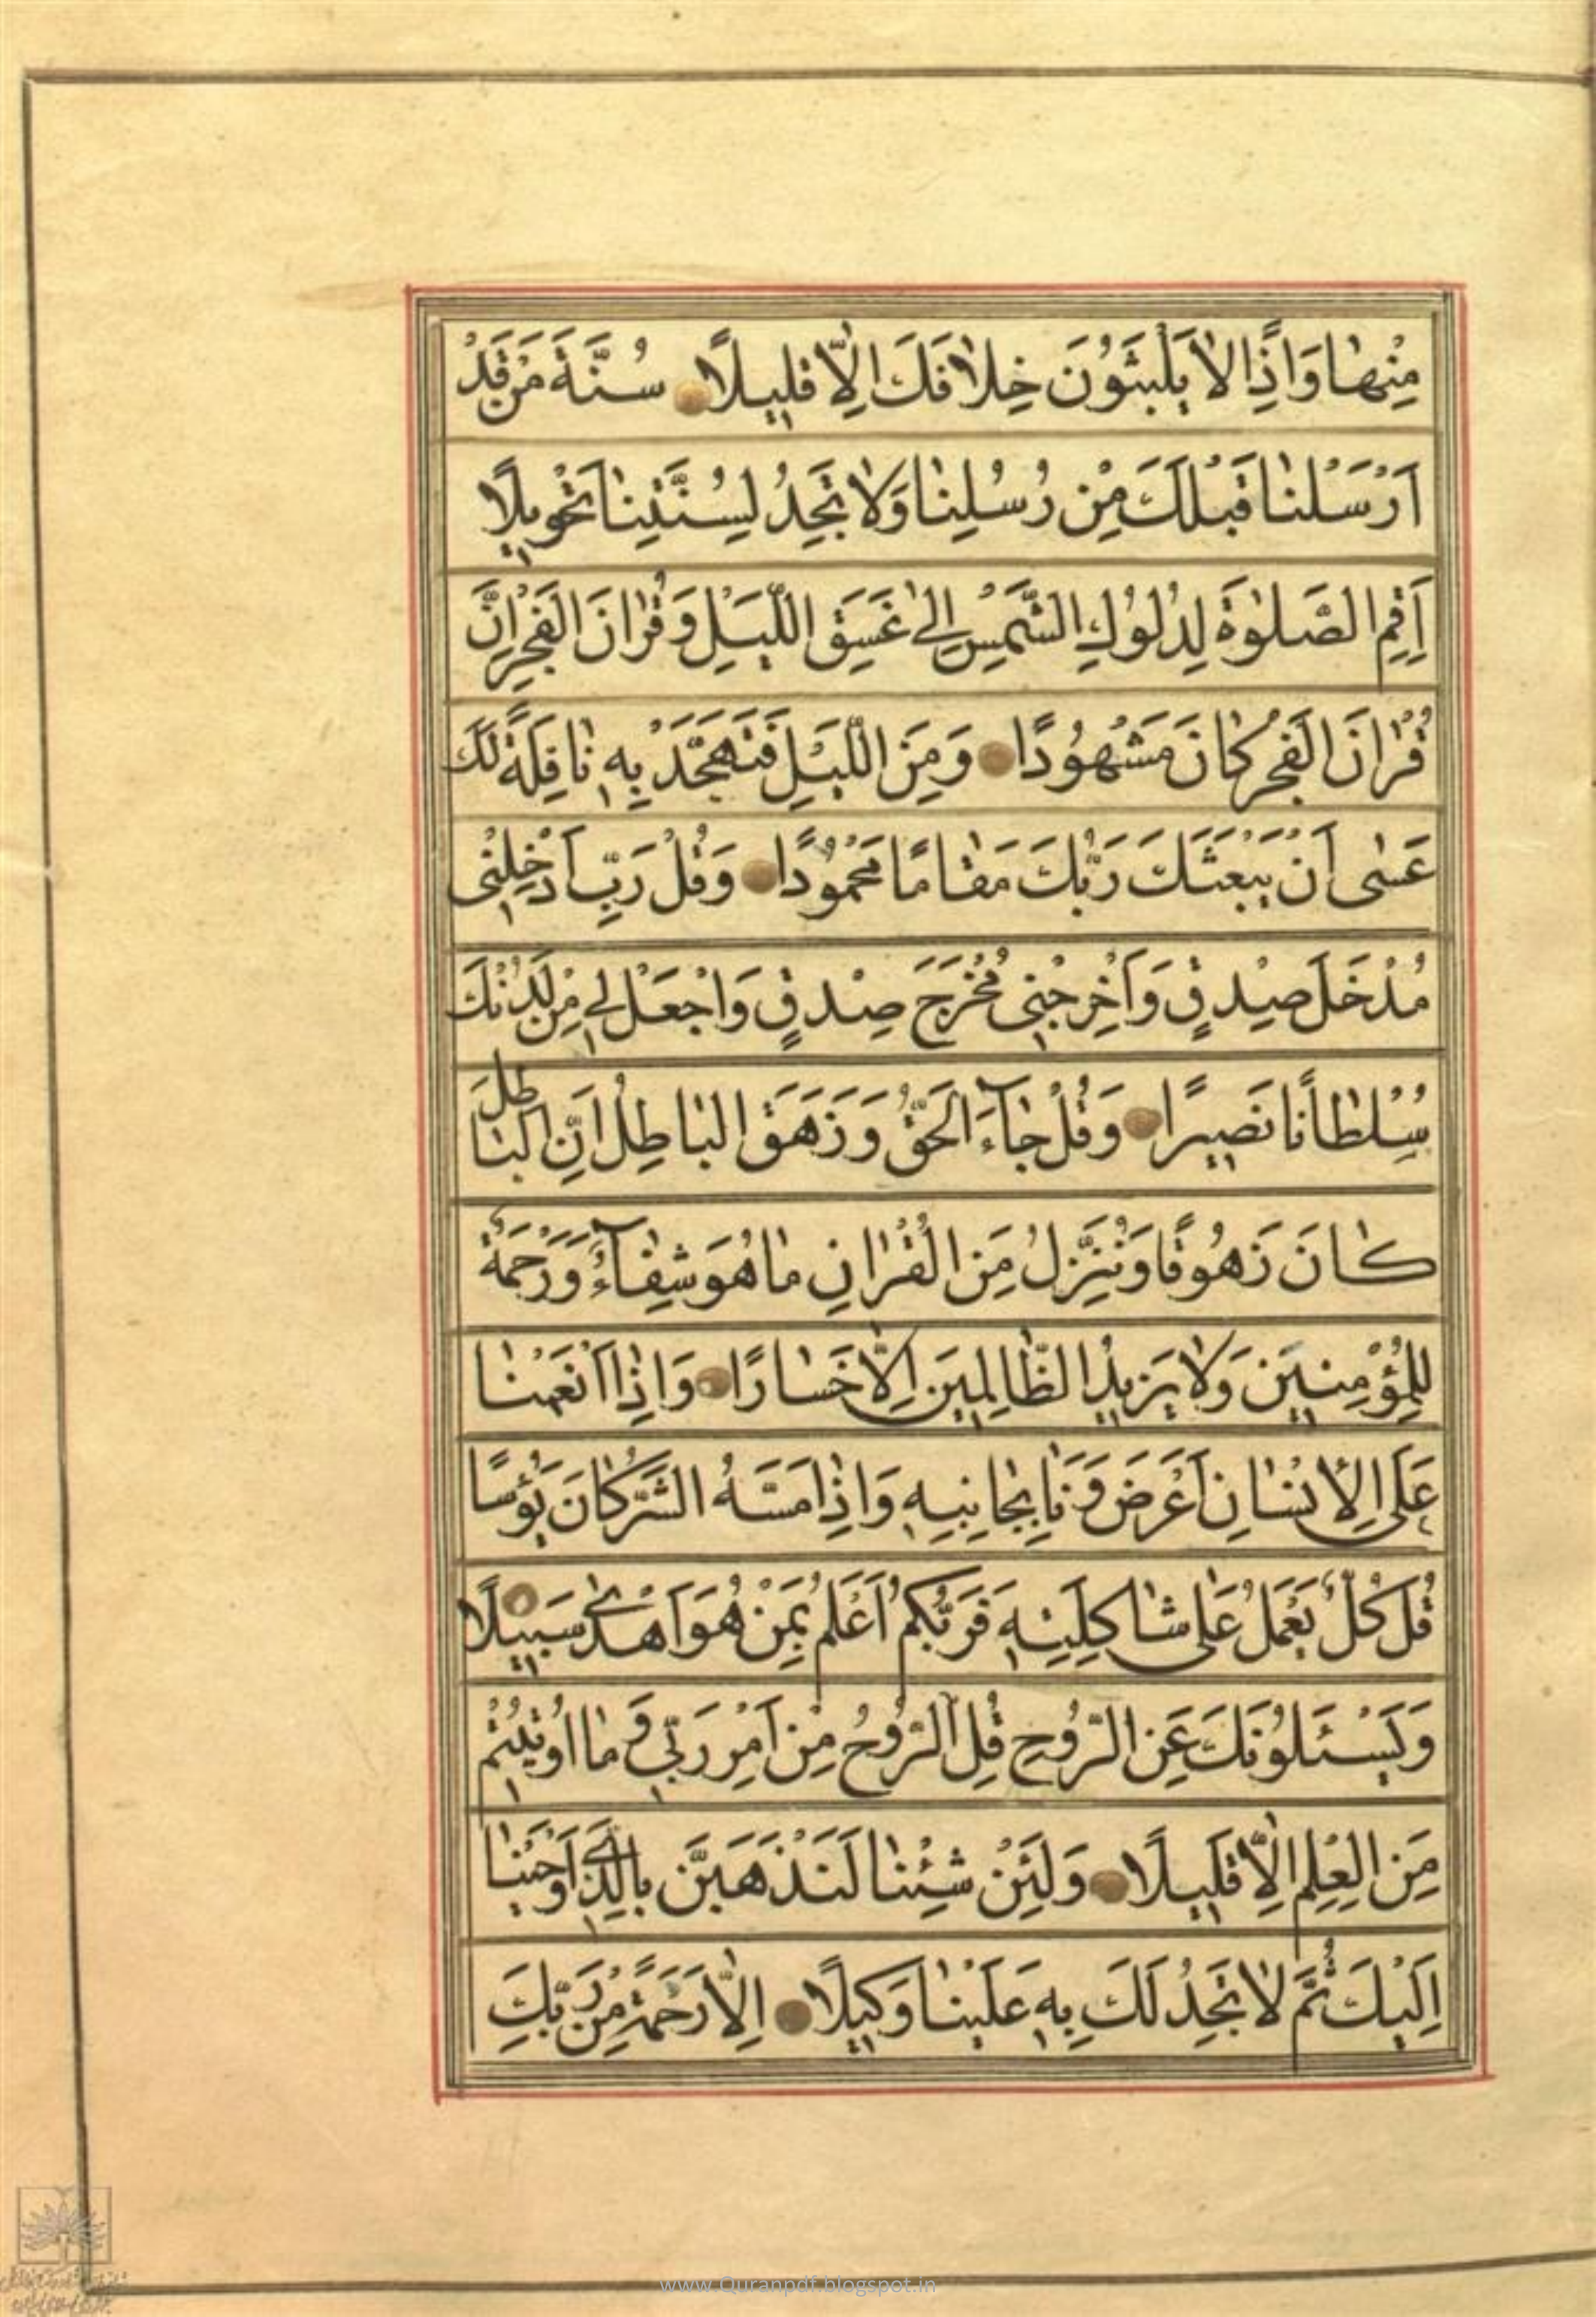 مِنْهٰا وَاِذًا لاٰ يَلْبَثُونَ خِلاٰفَكَ اِلّاٰ قَلِيلًا سُنَّةَ مَنْ قَدْ
اَرْسَلْنٰا قَبْلَكَ مِنْ رُسُلِنٰا وَلاٰ تَجِدُ لِسُنَّتِنٰا تَحْوِيلًا
اَقِمِ الصَّلٰوةَ لِدُلُوكِ الشَّمْسِ اِلٰى غَسَقِ اللَّيْلِ وَقُرْاٰنَ الْفَجْرِ اِنَّ
قُرْاٰنَ الْفَجْرِ كٰانَ مَشْهُودًا وَمِنَ اللَّيْلِ فَتَهَجَّدْ بِهِ نٰافِلَةً لَكَ
عَسٰى اَنْ يَبْعَثَكَ رَبُّكَ مَقٰامًا مَحْمُودًا وَقُلْ رَبِّ اَدْخِلْنِى
مُدْخَلَ صِدْقٍ وَاَخْرِجْنِى مُخْرَجَ صِدْقٍ وَاجْعَلْ لِى مِنْ لَدُنْكَ
سُلْطٰانًا نَصِيرًا وَقُلْ جٰاۤءَ الْحَقُّ وَزَهَقَ الْبٰاطِلُ اِنَّ الْبٰاطِلَ
كٰانَ زَهُوقًا وَنُنَزِّلُ مِنَ الْقُرْاٰنِ مٰا هُوَ شِفٰاۤءٌ وَرَحْمَةٌ
لِلْمُؤْمِنِينَ وَلاٰ يَزِيدُ الظّٰالِمِينَ اِلّاٰ خَسٰارًا وَاِذٰا اَنْعَمْنٰا
عَلَى الْاِنْسٰانِ اَعْرَضَ وَنَاٰ بِجٰانِبِهِ وَاِذٰا مَسَّهُ الشَّرُّ كٰانَ يَؤُسًا
قُلْ كُلٌّ يَعْمَلُ عَلٰى شٰاكِلَتِهِ فَرَبُّكُمْ اَعْلَمُ بِمَنْ هُوَ اَهْدٰى سَبِيلًا
وَيَسْئَلُونَكَ عَنِ الرُّوحِ قُلِ الرُّوحُ مِنْ اَمْرِ رَبِّى وَمٰا اُوتِيتُمْ
مِنَ الْعِلْمِ اِلّاٰ قَلِيلًا وَلَئِنْ شِئْنٰا لَنَذْهَبَنَّ بِالَّذِى اَوْحَيْنٰا
اِلَيْكَ ثُمَّ لاٰ تَجِدُ لَكَ بِهِ عَلَيْنٰا وَكِيلًا اِلّاٰ رَحْمَةً مِنْ رَبِّكَ
www.Quranpdf.blogspot.in